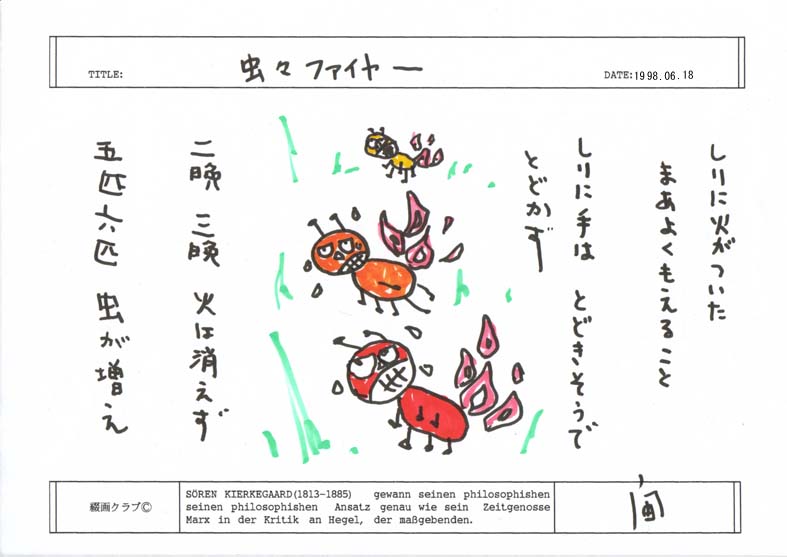 TITLE: 虫々ファイヤー
DATE:1998.06.18
しりに火がついた
まあよくもえること
しりに手は とどきそうで
とどかず
二晩 三晩 火は消えず
五匹六匹 虫が増え
綴画クラブ©
SÖREN KIERKEGAARD(1813-1885) gewann seinen philosophishen
seinen philosophishen Ansatz genau wie sein Zeitgenosse
Marx in der Kritik an Hegel, der maßgebenden.